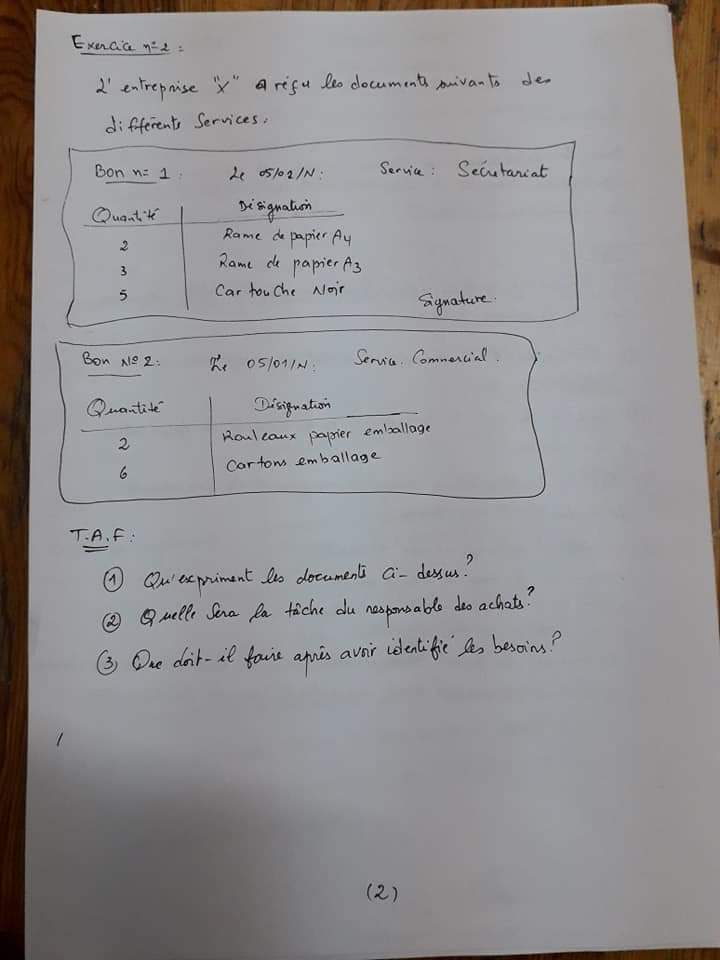 Exercice n° 2 :
L'entreprise "X" a réçu les documents suivants des
différents Services.
Bon n= 1 : Le 05/01/N : Service : Sécretariat
Quantité Désignation
2 Rame de papier A4
3 Rame de papier A3
5 Cartouche Noir
Signature.
Bon N° 2 : Le 05/01/N : Service . Commercial .
Quantité Désignation
2 Rouleaux papier emballage
6 Cartons emballage
T.A.F :
① Qu'expriment les documents ci-dessus ?
② Quelle sera la tâche du responsable des achats ?
③ Que doit-il faire après avoir identifié les besoins ?
(2)